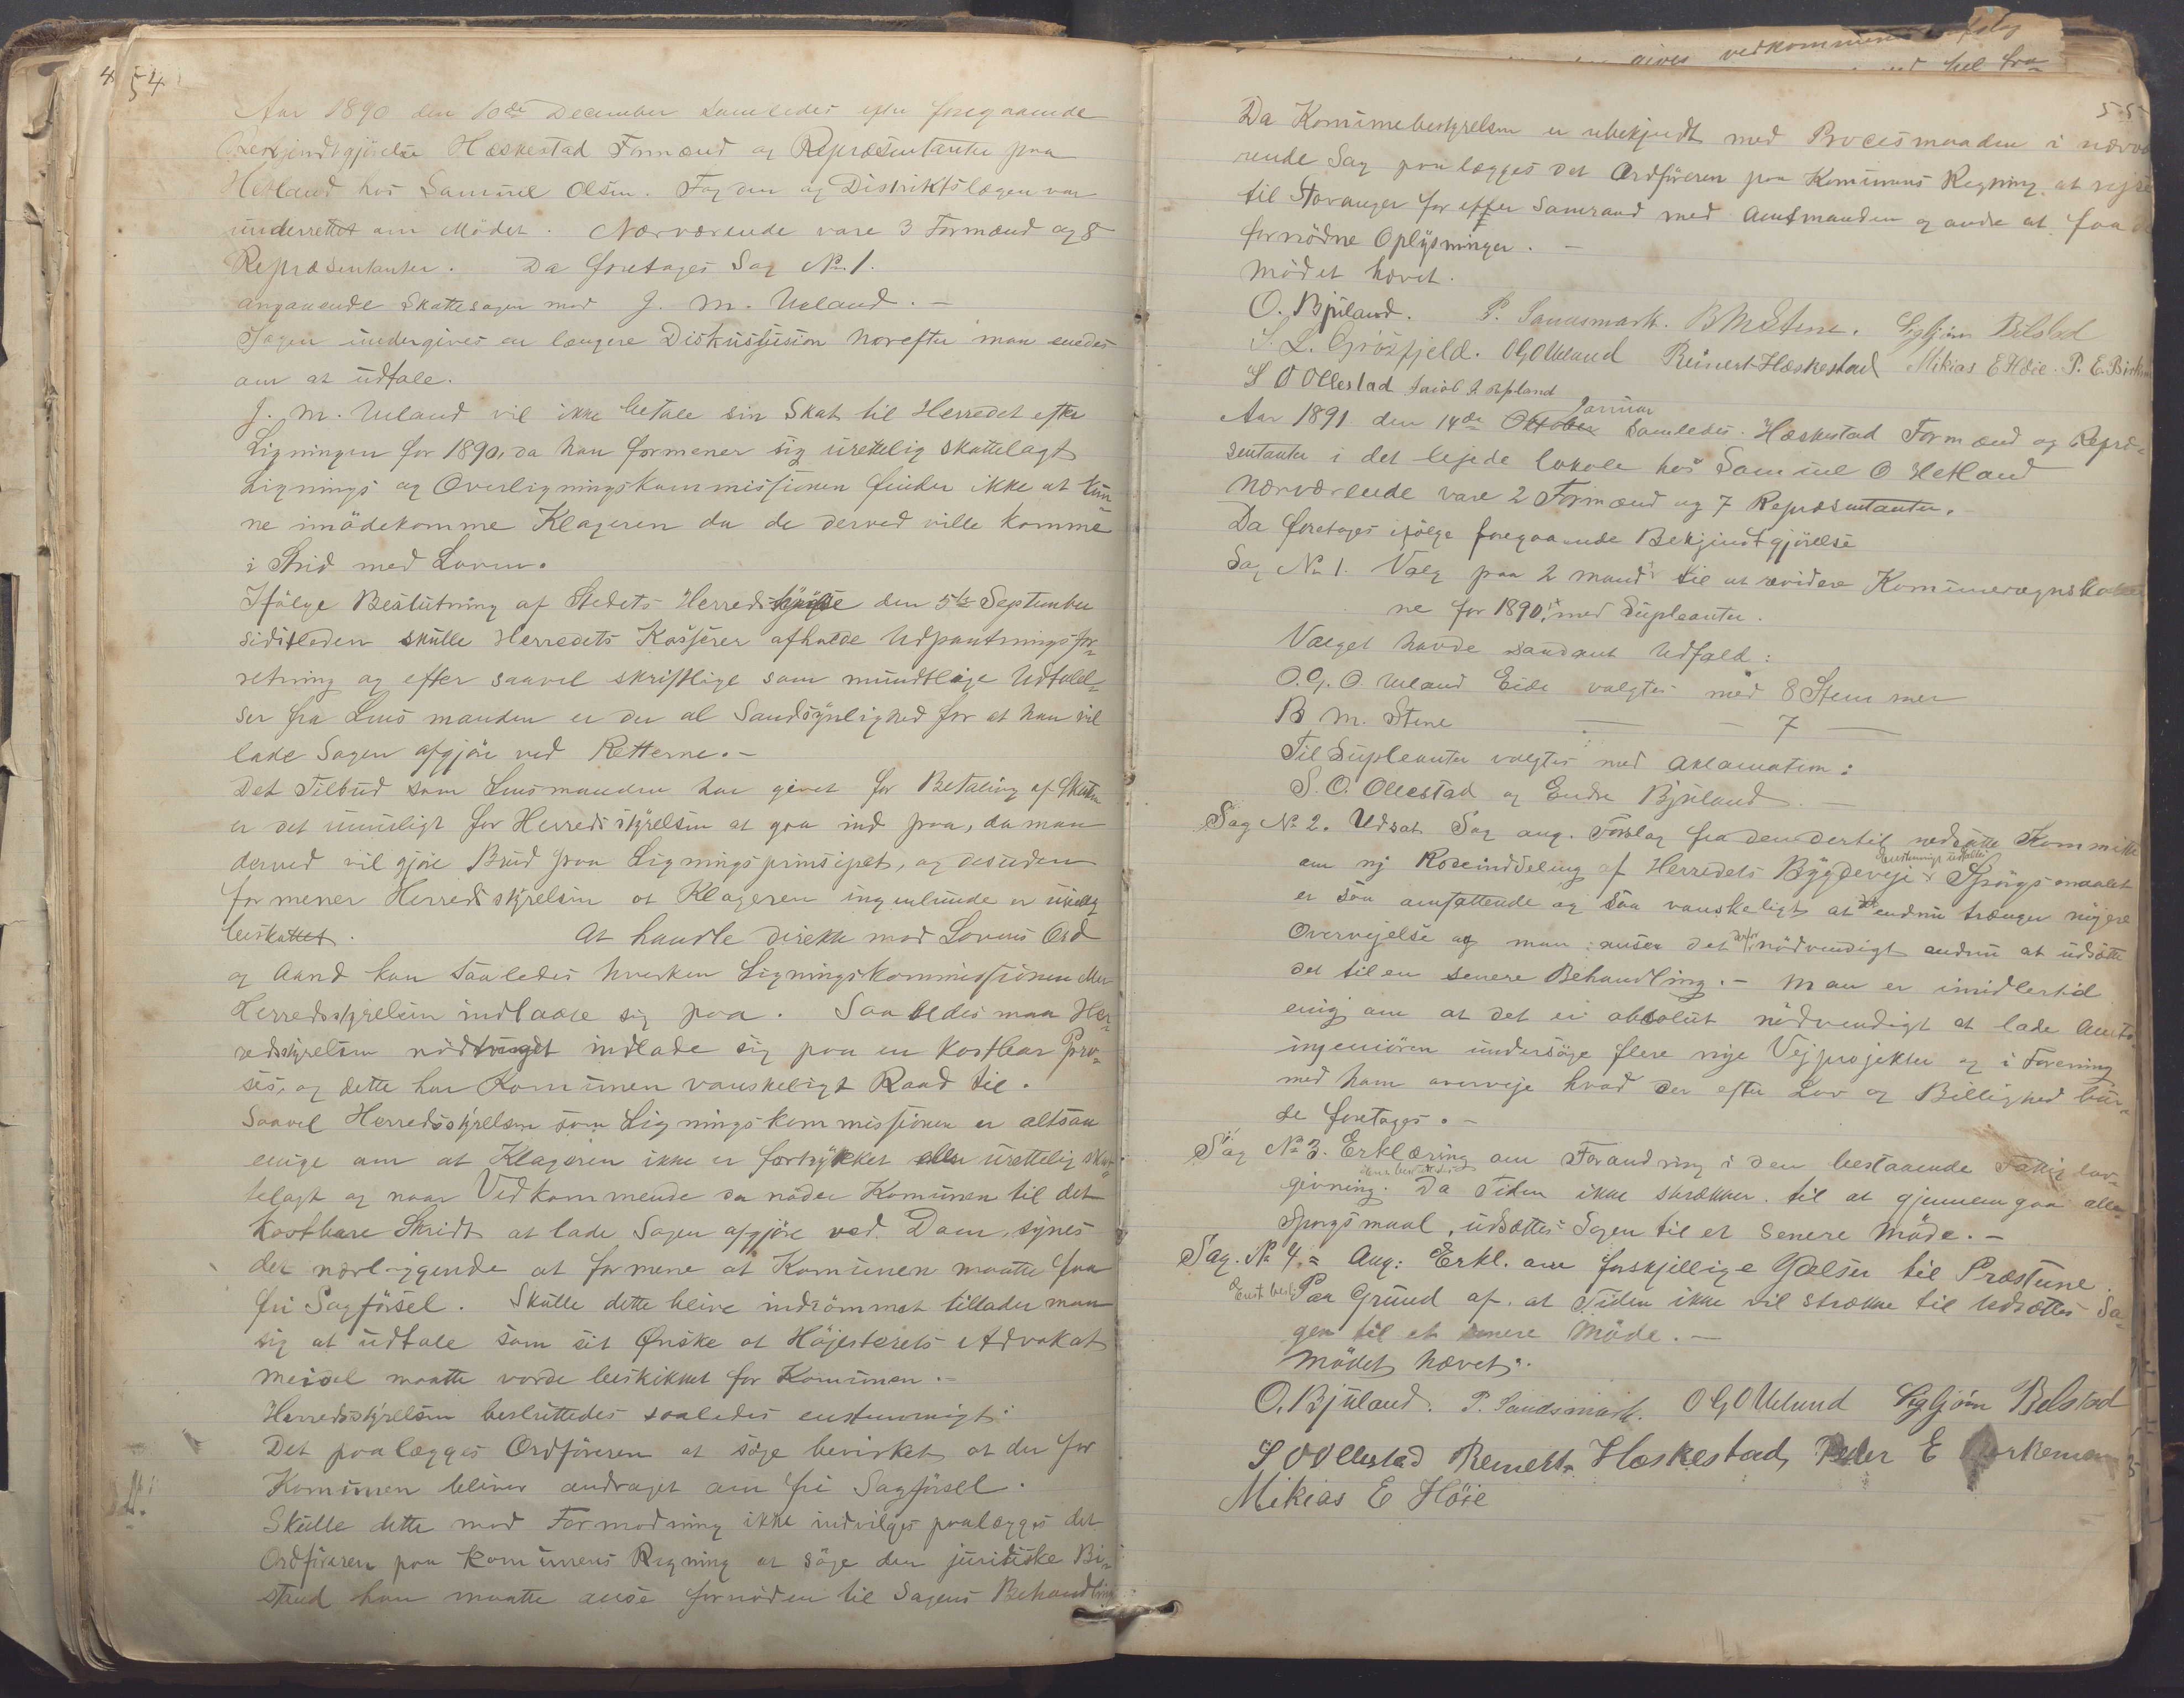 54
Aar 1890 den 10de December samledes efter foregaaende
Bekjendtgjörelse Heskestad Formænd og Repræsentanter paa
Hetland hos Samuel Olsen. Fogden og Distriktslægen var
underrettet om Mödet. Nærværende vare 3 Formænd og 8
Repræsentanter. Da foretages Sag No 1.
angaaende Skattesagen mod J. M. Ueland. –
Sagen undergives en længere Diskussjusion hvorefter man enedes
om at udtale.
J. M. Ueland vil ikke betale sin Skat til Herredet efter
Ligningen for 1890, da han formener sig urettelig skattelagt
Lignings og Overligningskommissjonen finder ikke at kun
ne imödekomme Klageren da de derved ville komme
i Strid med Loven.
Ifölge Beslutning af Stedets Herreds den 5te September
sidstleden skulle Herredets Kasserer afholde Udpantningsfor-
retning og efter saavel skriftlige som mundtlige Udtalel-
ser fra Lensmanden er der al Sandsynlighed for at han vil
lade Sagen afgjöre ved Retterne. –
Det Tilbud som Lensmanden har givet for Betaling af Skatten
er det umuligt for Herredsstyrelsen at gaa ind paa, da man
derved vil gjöre Brud paa Ligningsprinsipet, og desuden
formener Herredsstyrelsen at Klageren ingenlunde er urettelig
beskattet. At handle direkte mod Lovens Ord
og Aand kan saaledes hverken Ligningskommissjonen eller
Herredsstyrelsen indlade sig paa. Saaledes maa Her-
redsstyrelsen nödtvunget indlade sig paa en kostbar Pro-
ses, og dette har Komunen vanskeligt Raad til.
Saavel Herredsstyrelsen som Ligningskommissjonen er altsaa
enige om at Klageren ikke er fortrykket eller urettelig skat-
telagt og naar Vedkommende da nöder Komunen til det
kostbare Skridt at lade Sagen afgjöre ved Dom, synes
det nærliggende at formene at Komunen maatte faa
fri Sagförsel. Skulle dette blive indrömmet tillader man
sig at udtale som sit Ønske at Höjesterets Advokat
Meidel maatte vorde beskikket for Komunen. –
Herredsstyrelsen besluttedes saaledes enstemmigt:
Det paalægges Ordföreren at söge bevirket at der for
Komunen bliver andraget om fri Sagförsel.
Skulle dette mod Formodning ikke indvilges paalægges det
Ordföreren paa Komunens Regning at söge den juridiske Bi-
stand han maatte anse fornöden til Sagens Behandling
55
Da Komunebestyrelsen er ubekjendt med Procesmaaden i nærvæ
rende Sag paalægges det Ordföreren paa Komunens Regning at rejse
til Stavanger for efter Samraad med Amtmanden og andre at faa de
fornödne Oplysninger. –
Mödet hævet.
O. Bjuland. P. Sandsmark. B M Stene. Sigbjörn Bilstad
S. L. Grösfjeld. O G O Ueland Reinert Hæskestad Mikias E Höie. P. E. Birke
S O Ollestad
Januar
Aar 1891 den 14de Oktober samledes Hæskestad Formænd og Repræ-
sentanter i det lejede lokale hos Samuel O Hetland
Nærværende vare 2 Formænd og 7 Repræsentanter.
Da foretages ifölge foregaaende Bekjendtgjörelse
Sag No 1. Valg paa 2 mand til at revidere Komuneregnskaber
ne for 1890, med Supleanter.
Valget havde saadant Udfald:
O. G. O. Ueland Eide valgtes med 8 Stemmer
B M. Stene — – 7 —
Til Supleanter valgtes med Aklamation:
S. O. Ollestad og Endre Bjuland. –
Sag No 2. Udsat Sag ang. Forslag fra den dertil nedsatte Kommitte
om ny Rodeinddeling af Herredets Bygdeveje. Spörgsmaalet
er saa omfattende og saa vanskeligt at det endnu trænger nöjere
Overvejelse og man anser det derfor nödvendigt endnu at udsætte
det til en senere Behandling. – Man er imidlertid
enig om at det er absolut nödvendigt at lade Amts
ingeniören undersöge flere nye Vejprojekter og i Forening
med ham overveje hvad der efter Lov og Billighed bur-
de foretages. –
Sag No 3. Erklæring om Forandring i den bestaaende Fattiglov-
givning. Da Tiden ikke strækker til at gjennemgaa alle
Spörgsmaal, udsættes Sagen til et senere Möde. –
Sag. No 4. = Ang: Erkl. om forskjellige Ydelser til Præsterne.
Paa Grund af at Tiden ikke vil strække til Udsættes Sa-
gen til et senere Möde. –
Mödet hævet.
O. Bjuland. P. Sandsmark. O G O Ueland Sigbjörn Belstad
S O Ollestad Reinert Hæskestad, Peder E Birkemo
Mikias E Höie